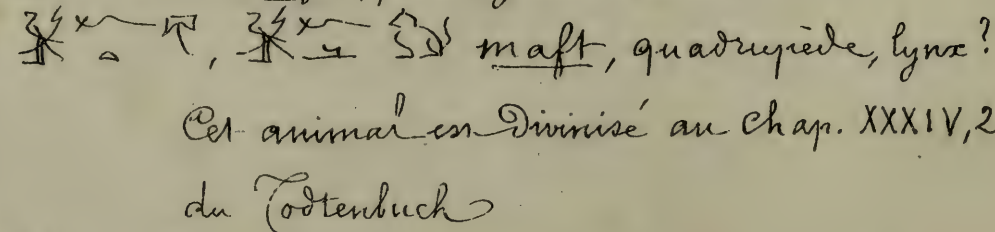 , maft, quadrupède, lynx?
Cet animal est Divinisé au Chap. XXXIV, 2
du Todtenbuch